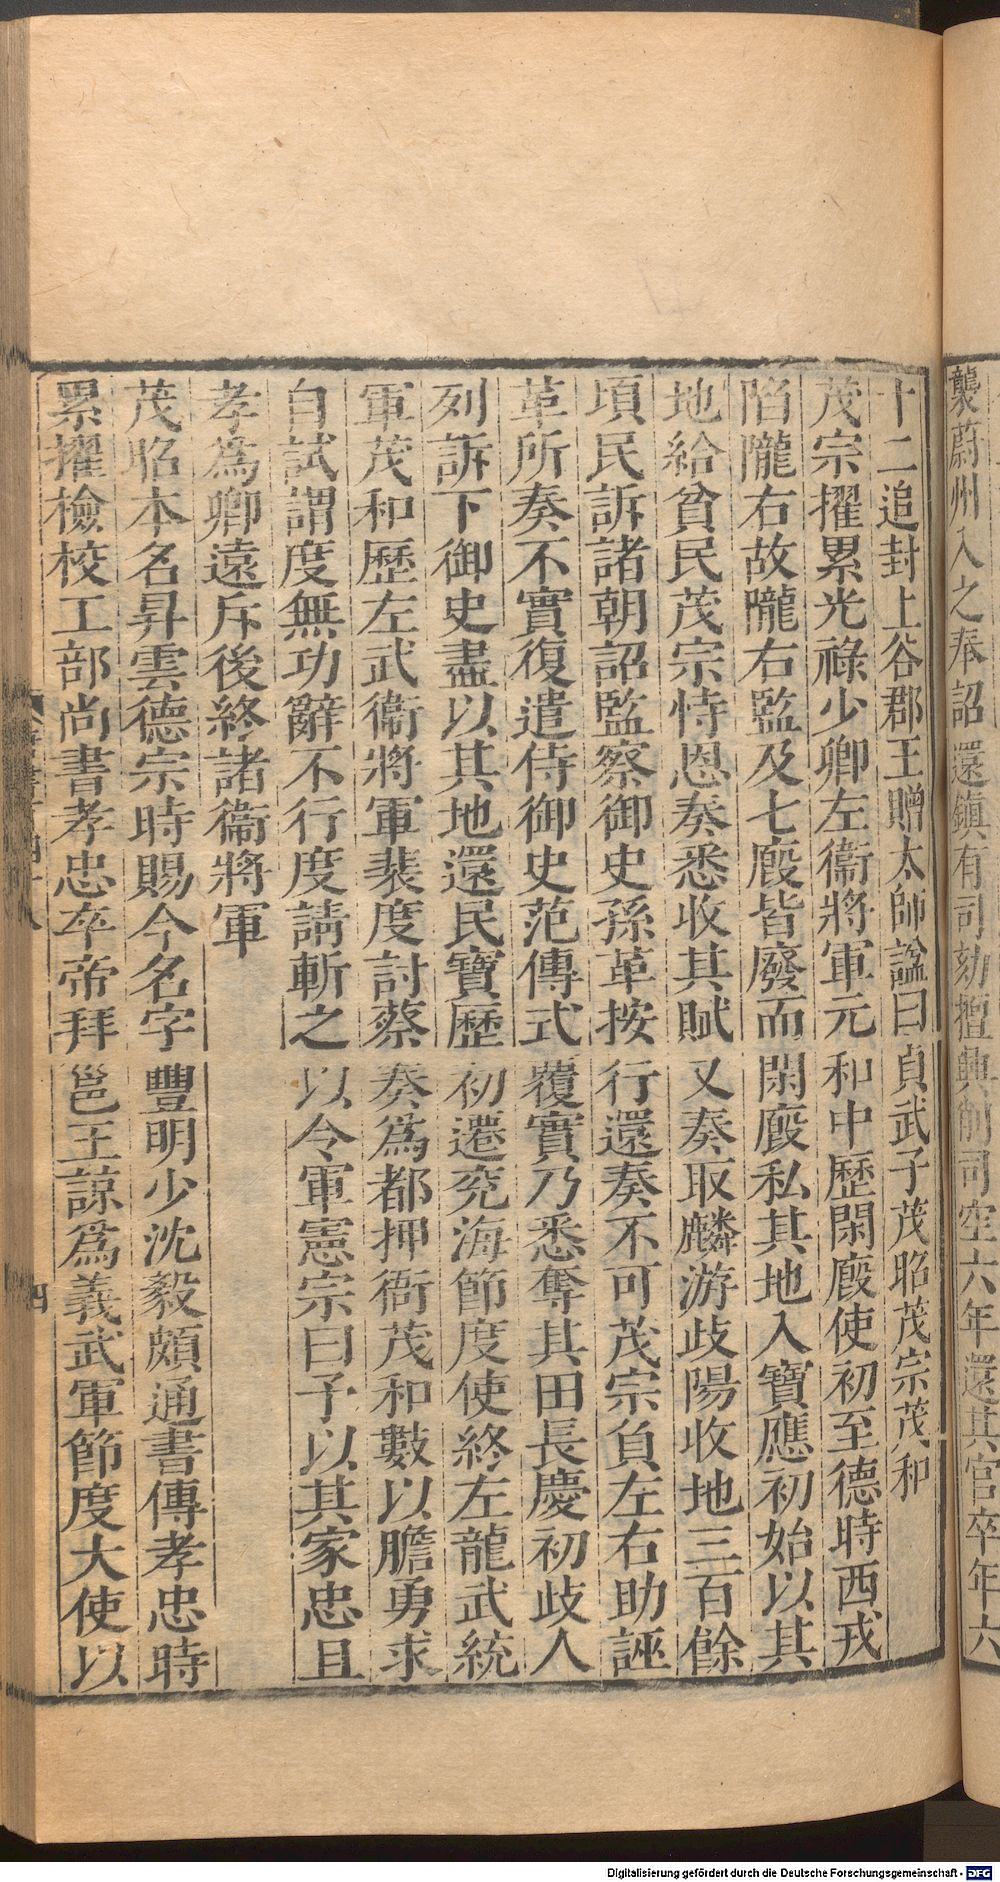 襲蔚州入之奉詔還鎮有司劾擅興削司空六年還其官卒年六
十二追封上谷郡王贈太師諡曰貞武子茂昭茂宗茂和
茂宗擢累光祿少卿左衞將軍元和中歷閑廏使初至德時西戎
陷隴右故隴右監及七廏皆廢而閑廏私其地入寶應初始以其
地給貧民茂宗恃恩奏悉收其賦又奏取麟游歧陽收地三百餘
頃民訴諸朝詔監察御史孫革按行還奏不可茂宗負左右助誣
革所奏不實復遣侍御史范傳式覆實乃悉奪其田長慶初歧人
列訴下御史盡以其地還民寶歷初遷兖海節度使終左龍武統
軍茂和歷左武衞將軍裴度討蔡奏爲都押衙茂和數以膽勇求
自試謂度無功辭不行度請斬之以令軍憲宗曰予以其家忠且
孝爲卿遠斥後終諸衞將軍
茂昭本名昇雲德宗時賜今名字豐明少沈毅頗通書傳孝忠時
累擢檢校工部尚書孝忠卒帝拜邕王諒爲義武軍節度大使以
四
Digitalisierung gefördert durch die Deutsche Forschungsgemeinschaft - DFG